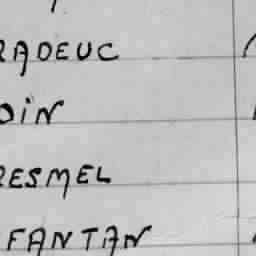 RADEUC
DIN
RESMEL
FANTAN